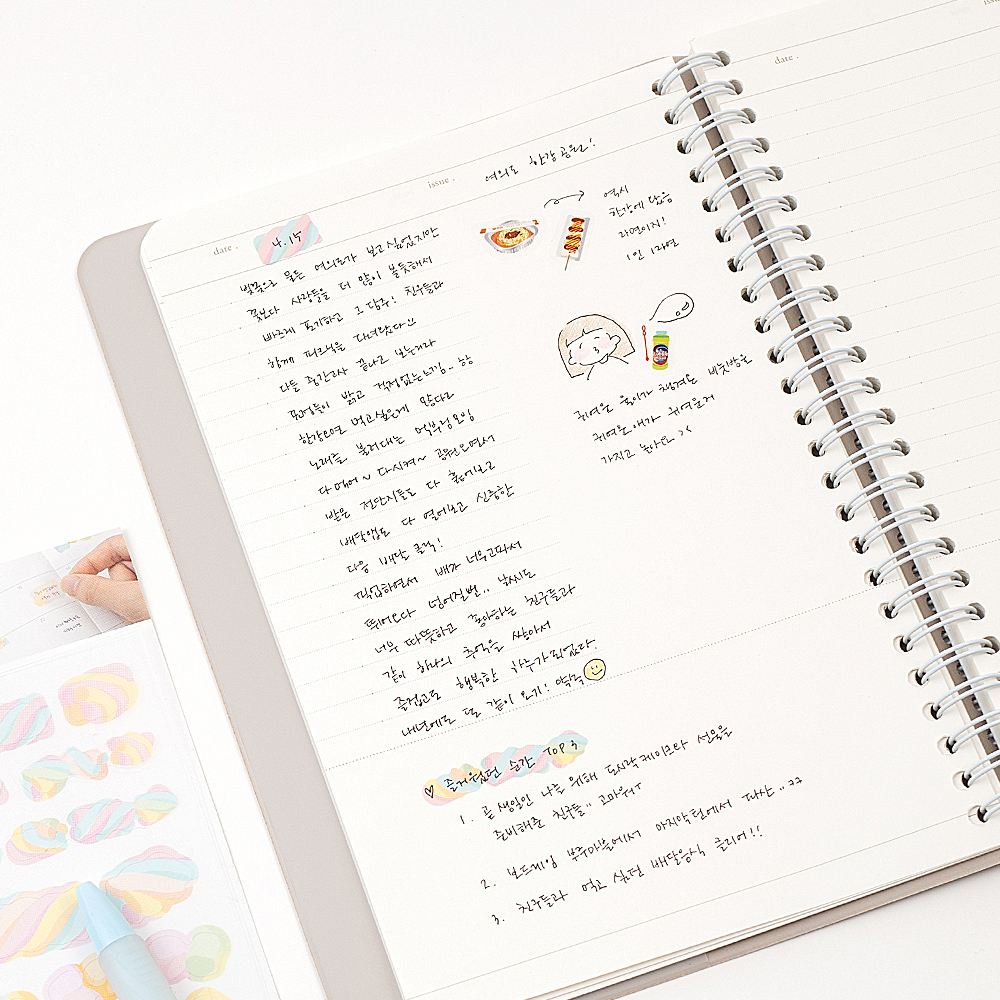 issue . 여의도 한강공원!
date . 4.15
벚꽃으로 물든 여의도가 보고싶었지만
꽃보다 사람들을 더 많이 볼듯해서
빠르게 포기하고 그 다음주! 친구들과
함께 피크닉을 다녀왔다
다들 중간고사 끝나고 보는거라
표정들이 밝고 걱정없는느낌_ ㅎㅎ
한강오면 먹고싶은게 많다고
노래를 불러대는
다 시켜~ 공원오면서
받은 전단지들도 다 훑어보고
배달앱도 다 열어보고 신중한
다음 배달 클릭!
피크하면서 배가 너무고파서
뛰어오다 넘어질뻔.. 날씨도
너무 따뜻하고 좋아하는 친구들과
같이 하나의 추억을 쌓아서
즐겁고도 행복한 하루가되었다.
내년에도 또 같이 오기! 약속
역시
한강에 왔음
라면이지!
1인 1라면
귀여운 윤이가 챙겨온 비눗방울
귀여운애가 귀여운거
가지고 논다ㅎ ><
♡ 즐거웠던 순간 TOP 3
1. 곧 생일인 나를 위해 도시락케이크와 선물을
준비해준 친구들 고마워ㅜ
2. 보드게임 부루마블에서 마지막 턴에서 파산..ㅋㅋ
3. 친구들과 먹고 싶던 배달음식 클리어!!
date .